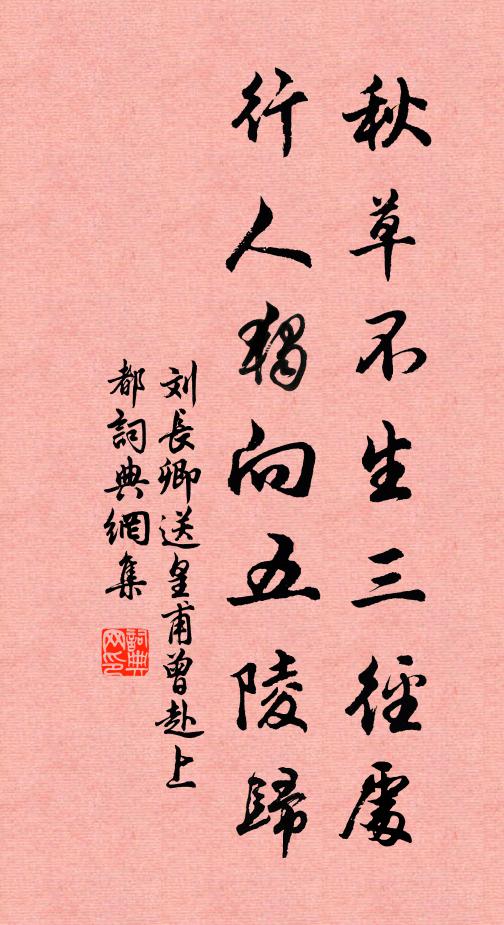 秋草不生三徑處
行人獨向五陵歸
刘長卿送皇甫曾赴上
都詞典網集
詞典网印